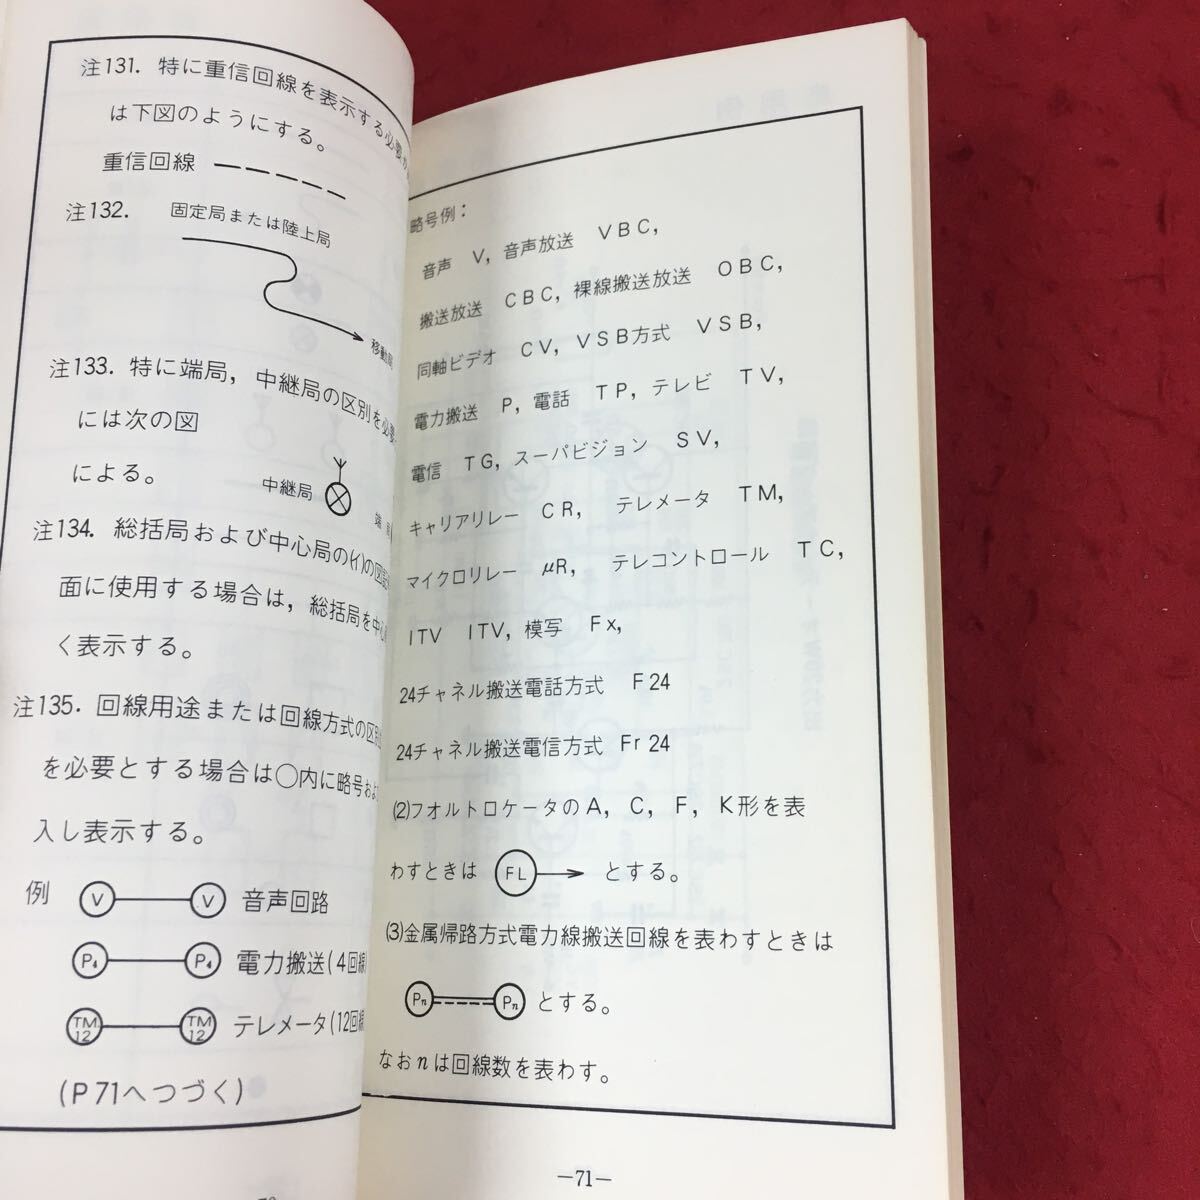 注131. 特に重信回線を表示する必要が
は下図のようにする。
重信回線
注132. 固定局または陸上局
移動局
注133. 特に端局, 中継局の区別を必要
には次の図
による。
中継局
端局
注134. 総括局および中心局の(イ)の図記
面に使用する場合は, 総括局を中心
く表示する。
注135. 回線用途または回線方式の区別
を必要とする場合は○内に略号およ
入し表示する。
例 V V 音声回路
P4 P4 電力搬送(4回線
TM12 TM12 テレメータ(12回線
(P71へつづく)
略号例:
音声 V, 音声放送 VBC,
搬送放送 CBC, 裸線搬送放送 OBC,
同軸ビデオ CV, VSB方式 VSB,
電力搬送 P, 電話 TP, テレビ TV,
電信 TG, スーパビジョン SV,
キャリアリレー CR, テレメータ TM,
マイクロリレー μR, テレコントロール TC,
ITV ITV, 模写 Fx,
24チャネル搬送電話方式 F24
24チャネル搬送電信方式 Fr24
(2)フオルトロケータのA, C, F, K形を表
わすときは FL とする。
(3)金属帰路方式電力線搬送回線を表わすときは
Pn Pn とする。
なおnは回線数を表わす。
—71—